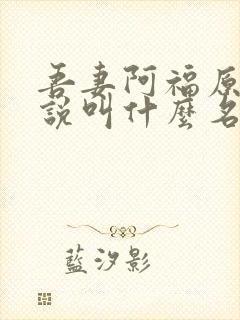 吾妻阿福原
說叫什麼名
藍汐影